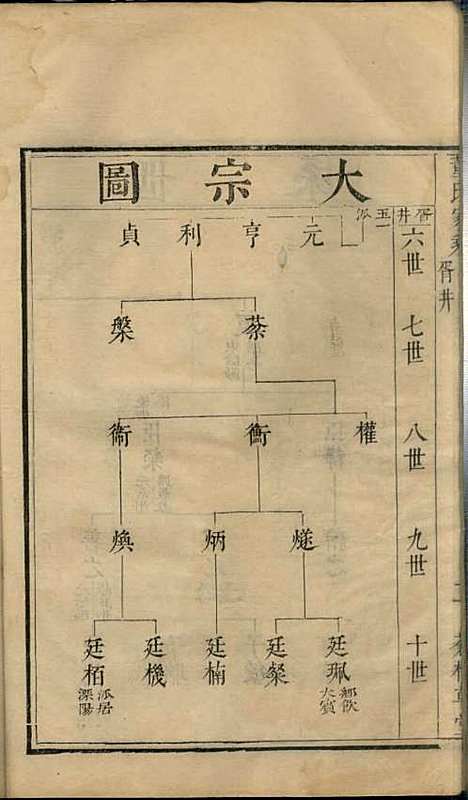 大宗圖
胥井
五一派
六世
元
亨
利
貞
七世
蔡
槃
八世
權
衡
衛
九世
燧
炳
煥
十世
廷珮
鄉飲大賓
廷粲
廷楠
廷機
廷栢
派居溧陽
胥井